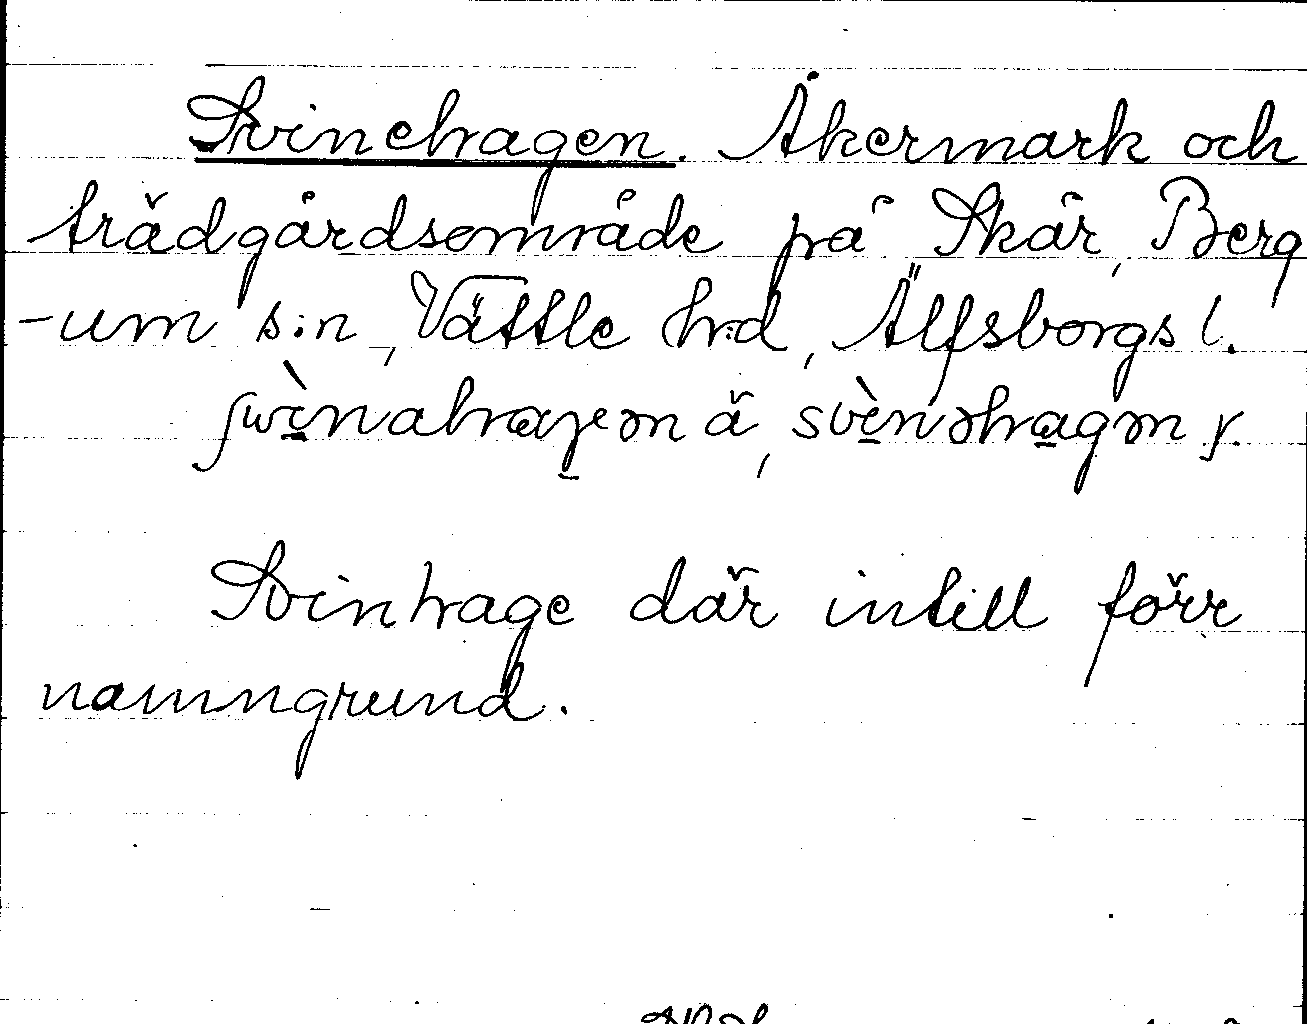 Svinehagen. Åkermark och
trädgårdsområde på Skår, Berg
-um s:n, Vättle hd, Älfsborgs l.
ʃwènahaɣen ä, svènəhagən y.
Svinhage där intill förr
namngrund.